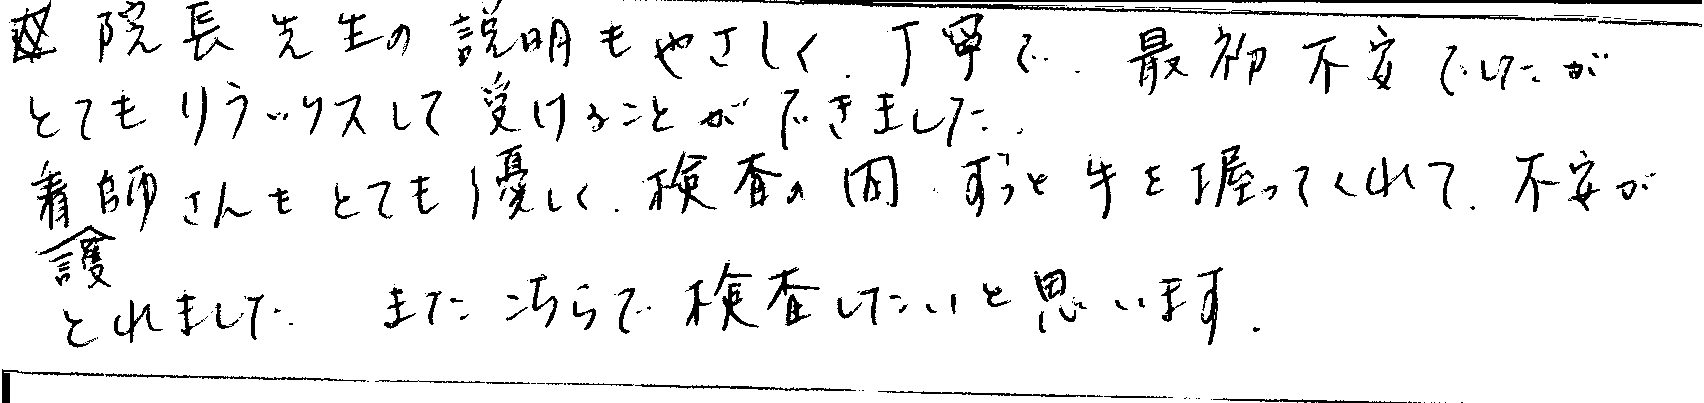 院長先生の説明もやさしく、丁寧で、最初不安でしたが
とてもリラックスして受けることができました。
看護師さんもとても優しく、検査の間、ずっと手を握ってくれて、不安が
とれました。 またこちらで検査したいと思います。